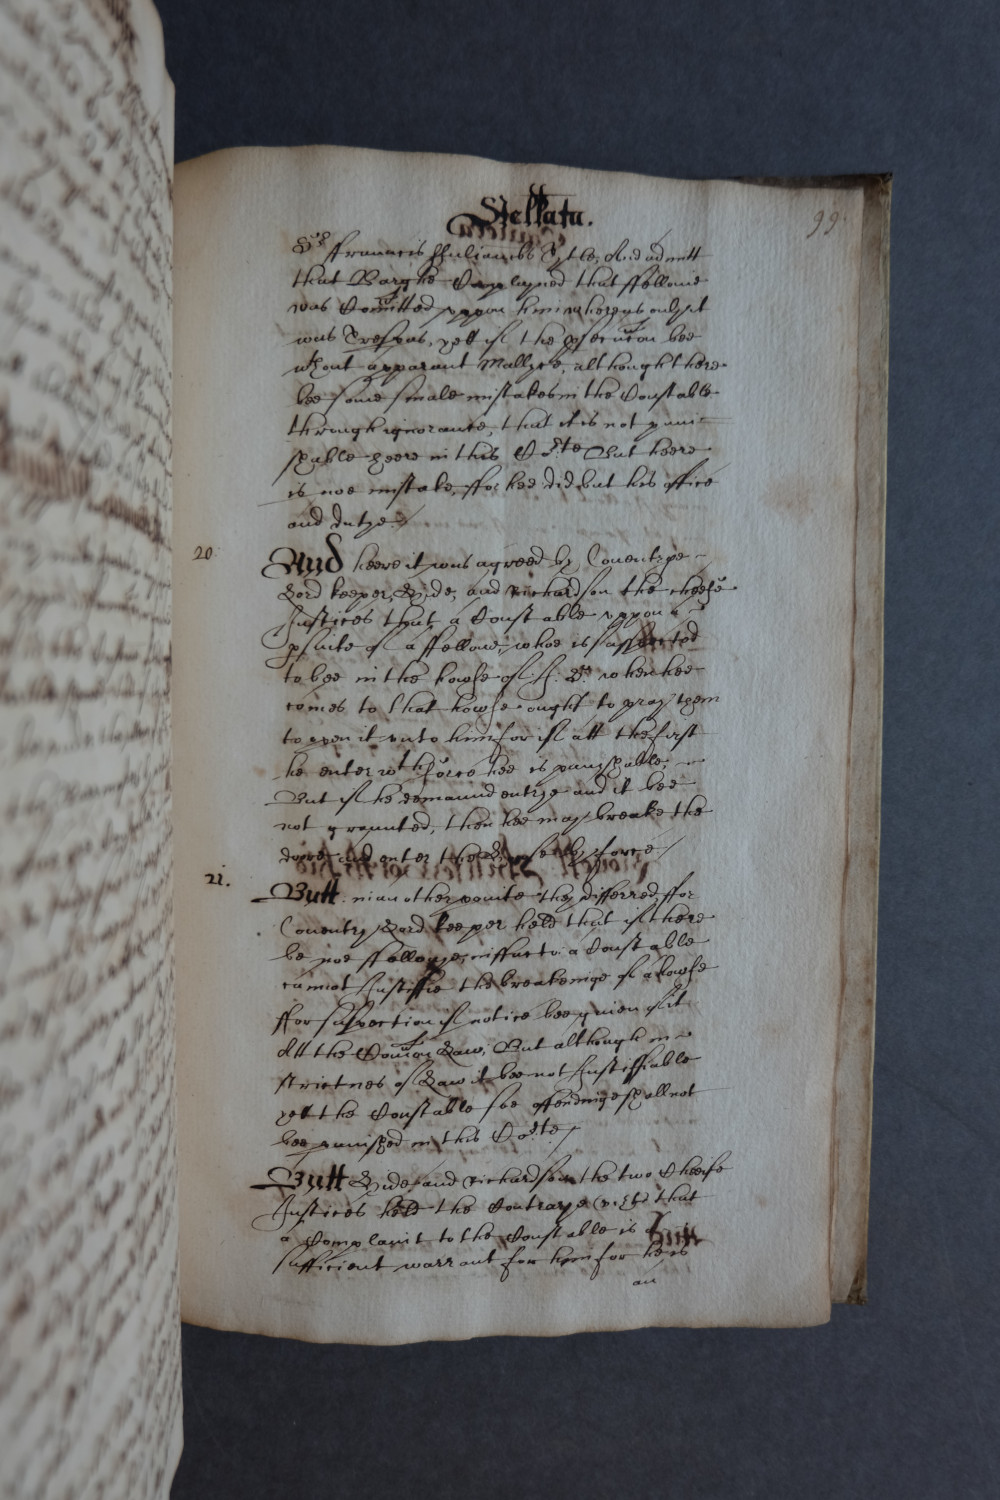 Stellata.
99
Sr ffrauncis
that Barg he Complayned that ffellonie
was Comitted vppon him whereas onlye it
was Trespas, yett if the psecucon bee
wthout apparant Mallyce, although there
bee some smale mistakes in the Constable
through ignorance, that it is not puni-
shable heere in this Corte But heere
is noe mistake, ffor hee did but his office
and dutye /
20.
And heere it was agreed by Couentrye
Lord keeper, Hide, and Richardson the cheefe
Justices that a Constable vppon a
psuite of a ffellow, whoe is suspected
to bee in the howse of J: S: when hee
comes to that howse ought to pray them
to open it vnto him for if att the first
he enter wth fforce hee is punishable,
But if he demaund entrye and it bee
not graunted, then hee may breake the
dore and enter the howse by force /
21.
Butt in another pointe they differred, ffor
Couentry Lord keeper held that if there
be noe ffellonye in ffacto a Constable
cannot Justiffie the breakeinge of a howse
ffor suspection if notice bee giuen of it
Att the Comon Law, But although in
strictnes of Law it bee not Justiffiable
yett the Constable soe offendinge shall not
bee punished in this Corte /
Butt Hide and Richardson the two Cheefe
Justices held the Contrarye (vizt) that
a Complaint to the Constable is a
sufficient warrant for him for he is
an